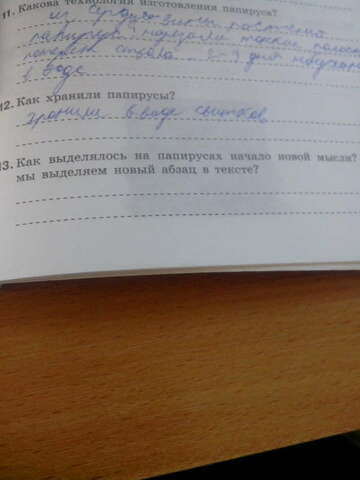 11. Какова технология изготовления папируса?
из сердцевины растения
папируса нарезали тонкие полосы
поперек ствола 3-4 дня
в воде
12. Как хранили папирусы?
хранили в виде свитков
13. Как выделялось на папирусах начало новой мысли?
мы выделяем новый абзац в тексте?